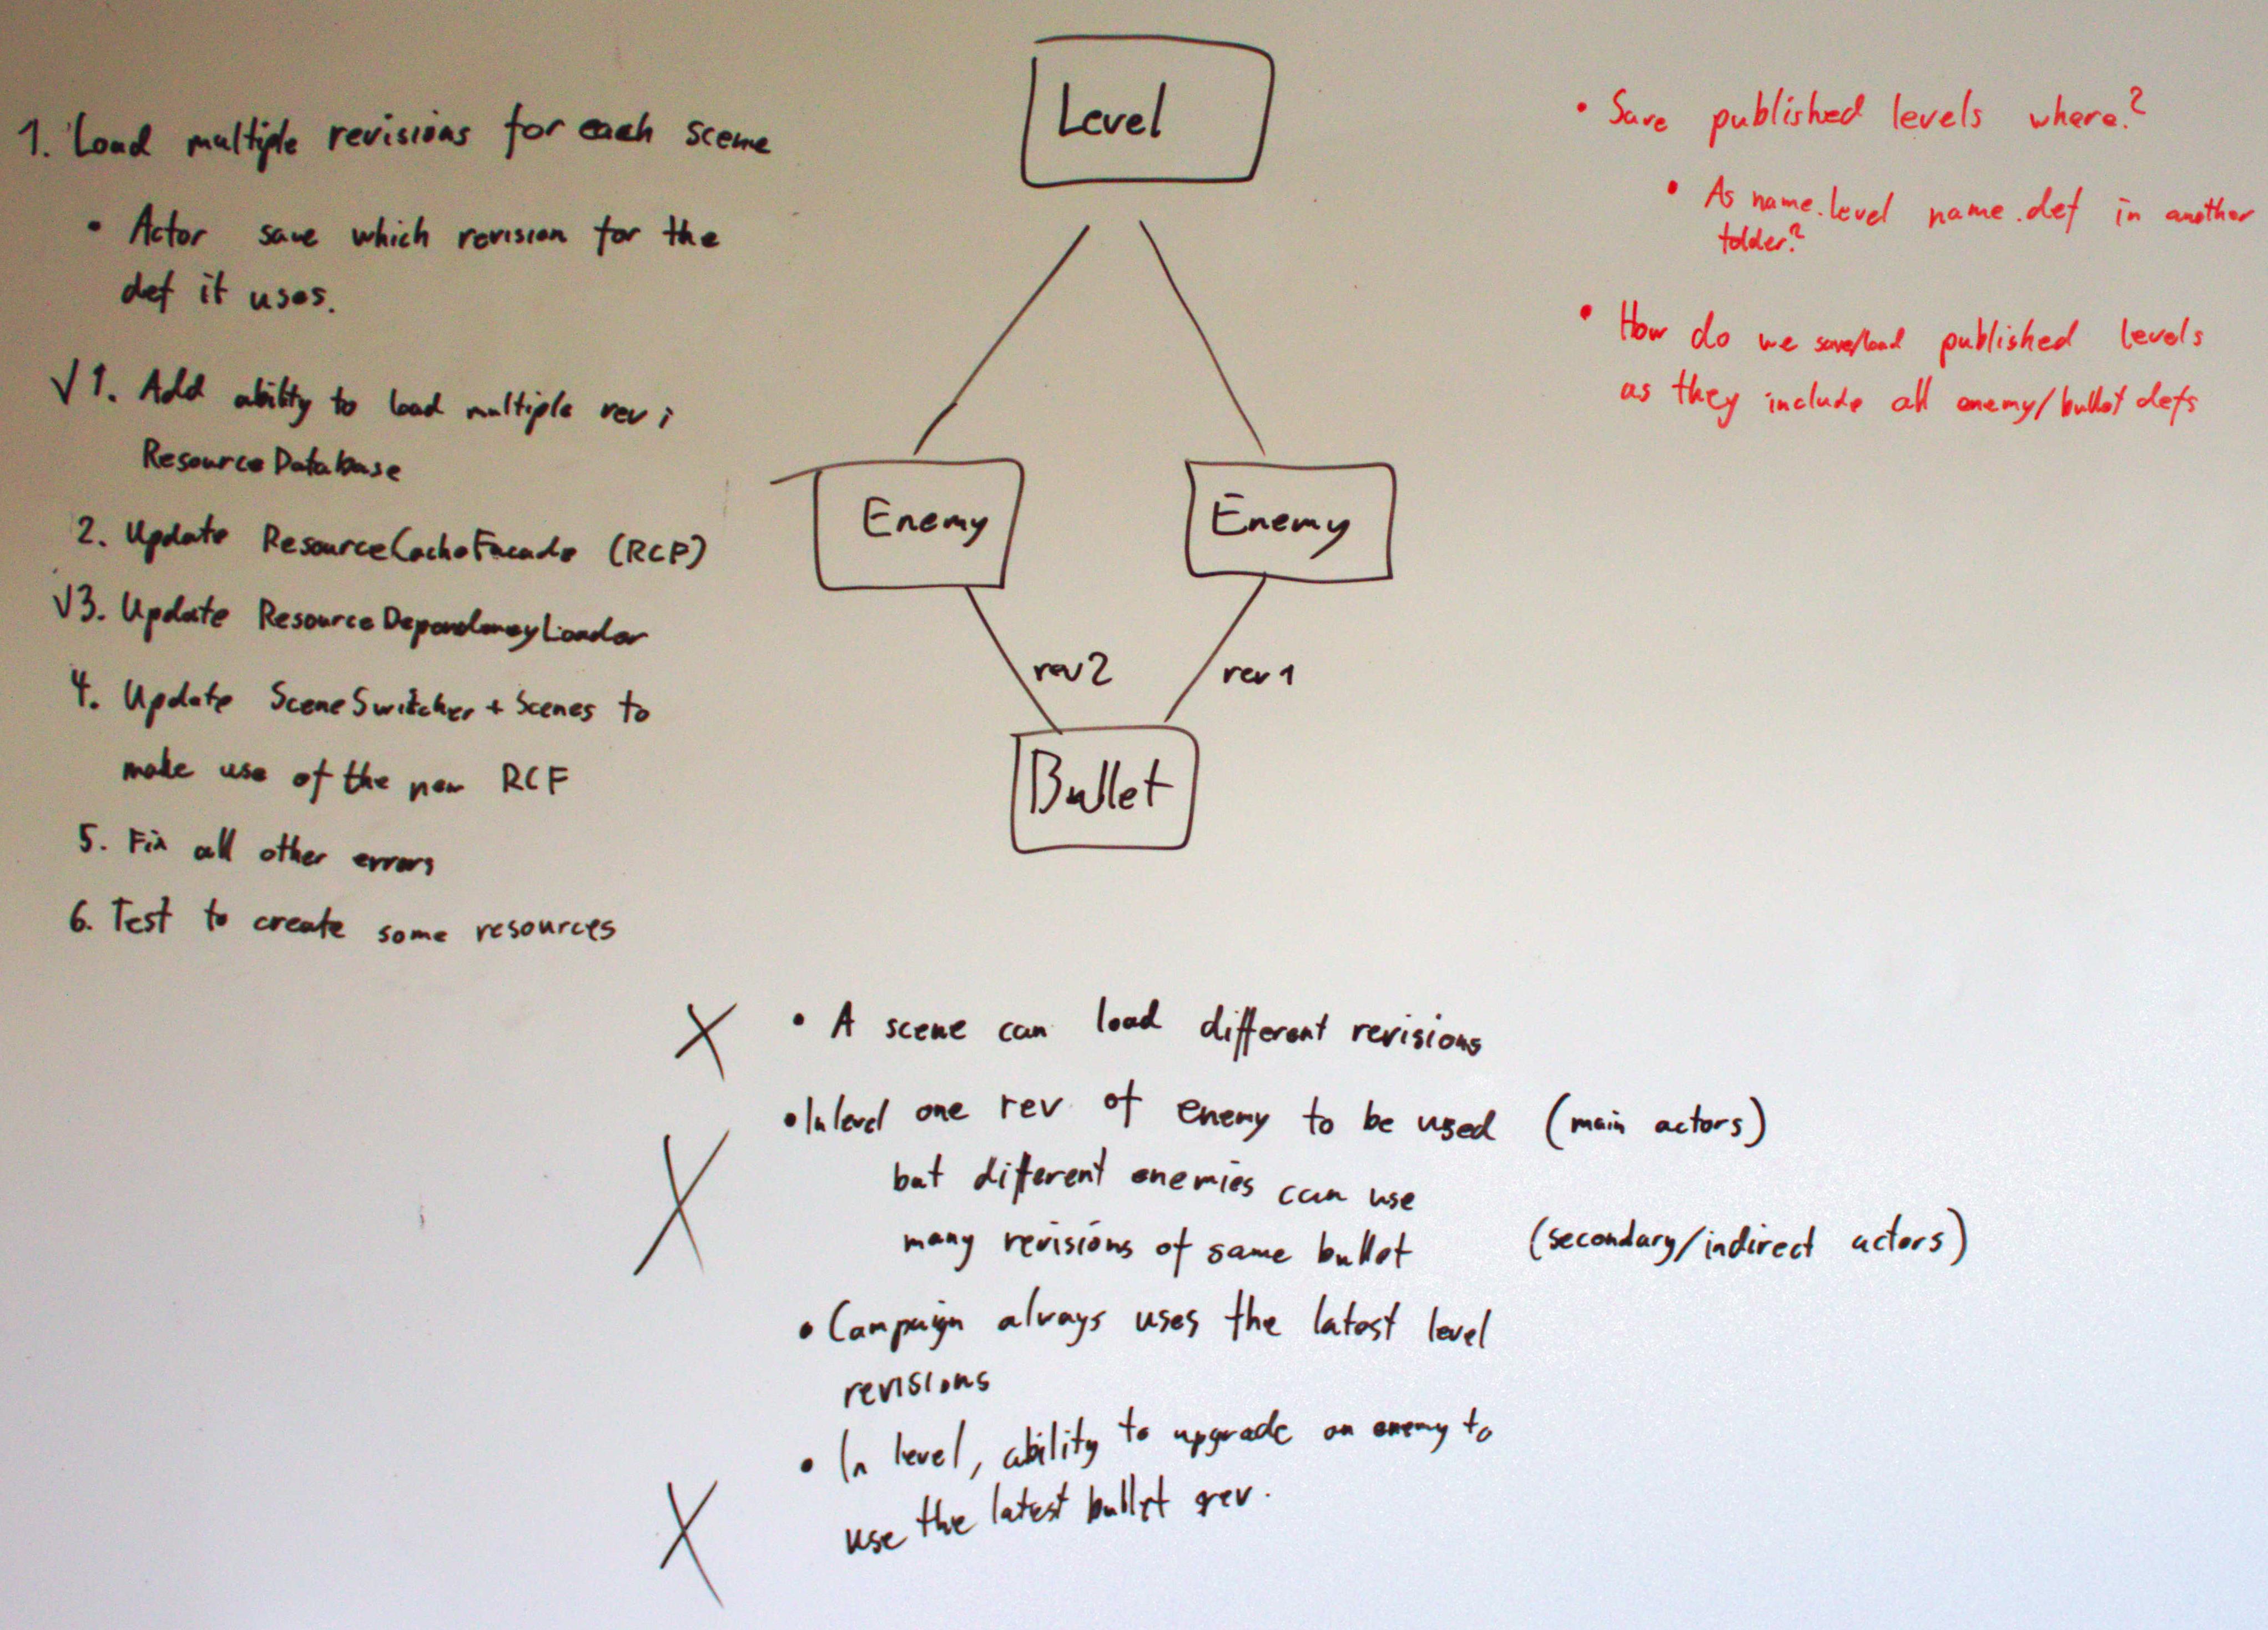 1. Load multiple revisions for each scene
• Actor save which revision for the
def it uses.
√ 1. Add ability to load multiple rev i
ResourceDatabase
2. Update ResourceCacheFacade (RCF)
√3. Update ResourceDependencyLoader
4. Update SceneSwitcher + Scenes to
make use of the new RCF
5. Fix all other errors
6. Test to create some resources
Level
Enemy
Enemy
rev2
rev1
Bullet
• Save published levels where?
• As name.level name.def in another
folder?
• How do we save/load published levels
as they include all enemy/bullet defs
X • A scene can load different revisions
• In level one rev of enemy to be used (main actors)
X but different enemies can use
many revisions of same bullet (secondary/indirect actors)
• Campaign always uses the latest level
revisions
• In level, ability to upgrade an enemy to
X use the latest bullet rev.